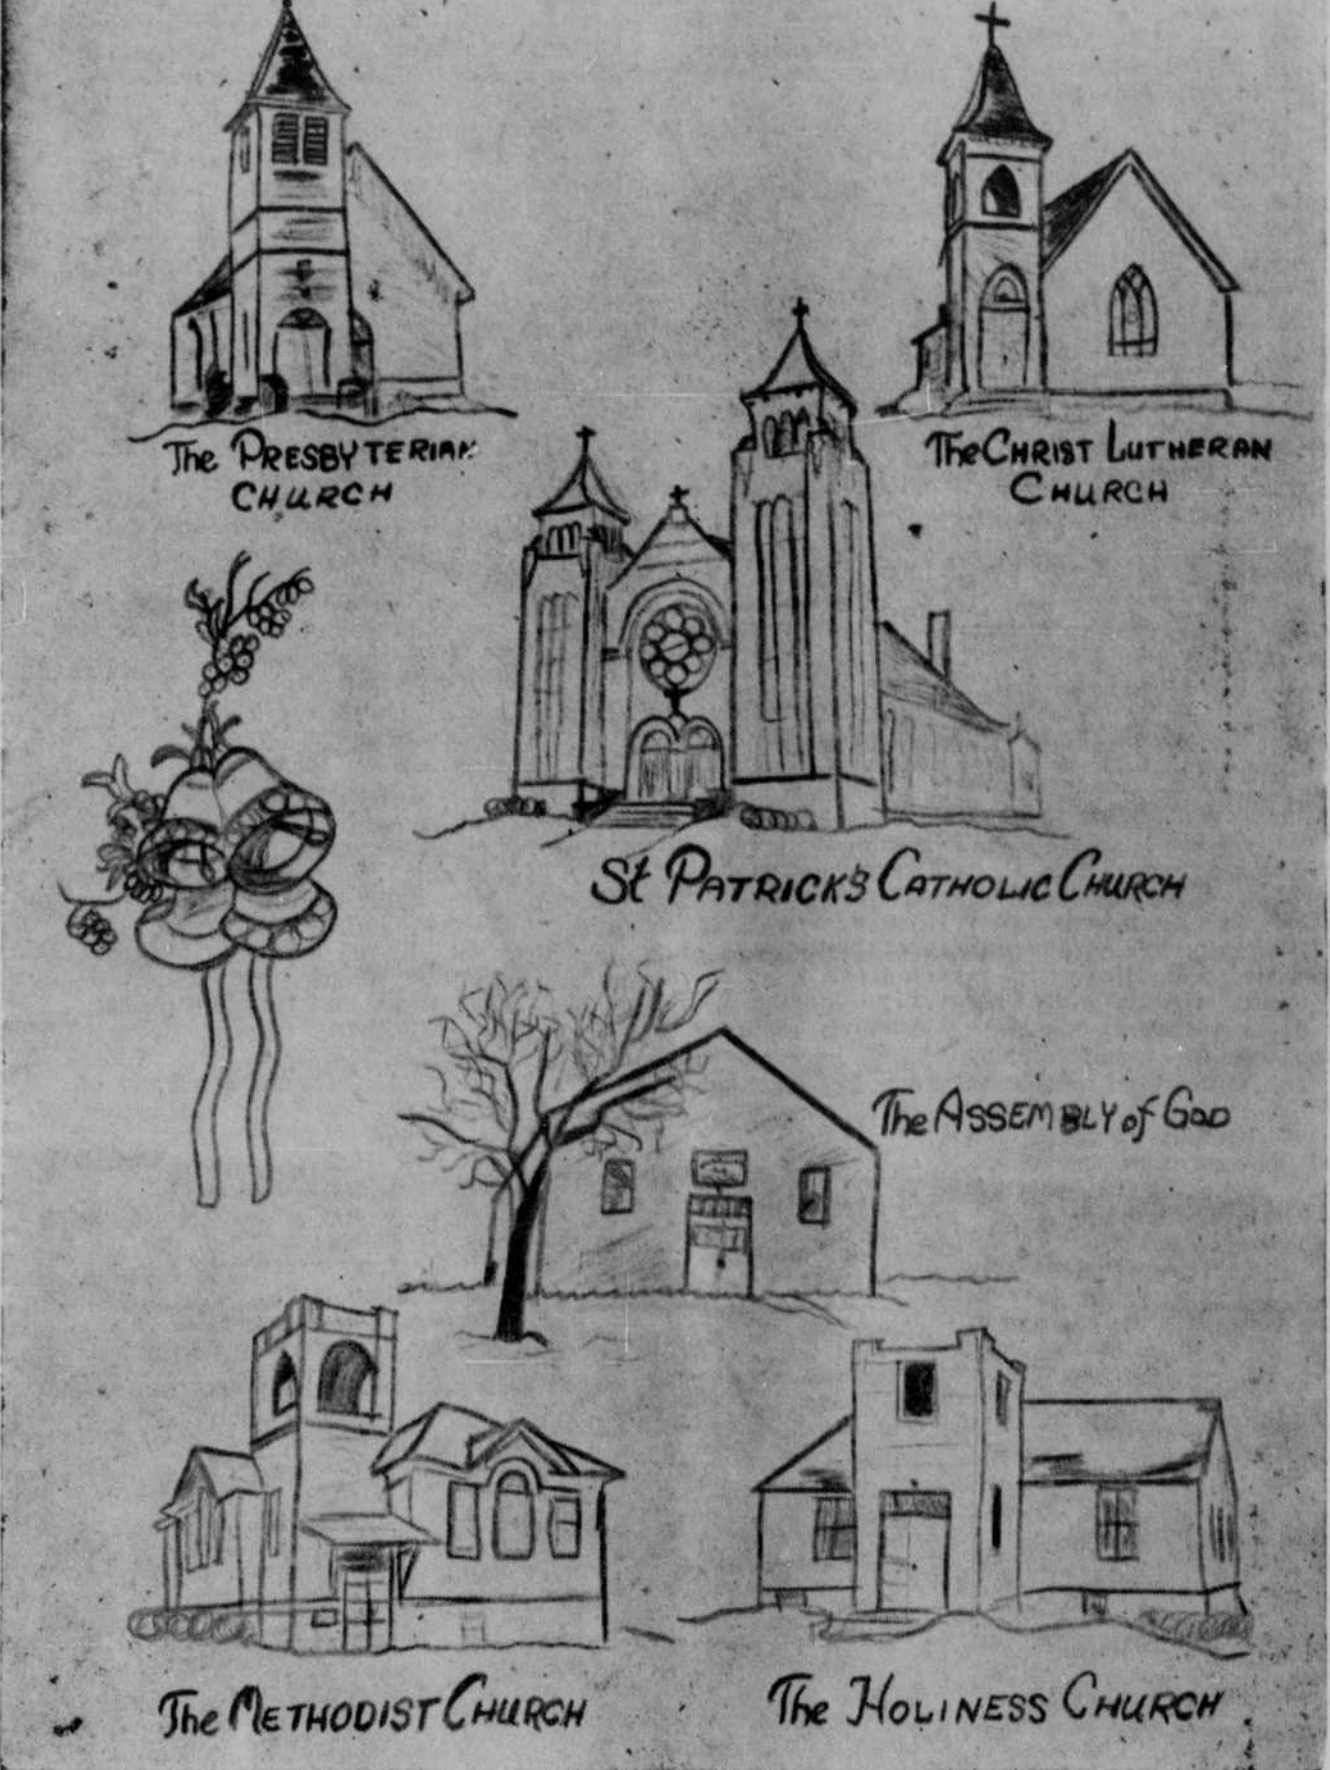 The PRESBYTERIAN
CHURCH
The CHRIST LUTHERAN
CHURCH
St PATRICK'S CATHOLIC CHURCH
The ASSEMBLY of GOD
The METHODIST CHURCH
The HOLINESS CHURCH